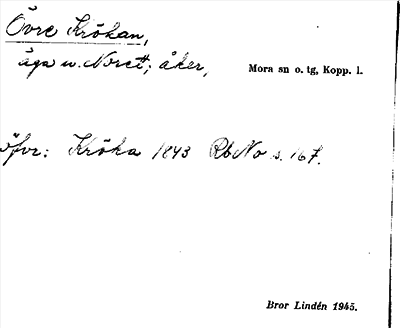 Övre Krökan,
äga u. Noret; åker,
Mora sn o. tg, Kopp. l.
öfvr: Kröka 1843 RbNo s. 167.
Bror Lindén 1945.